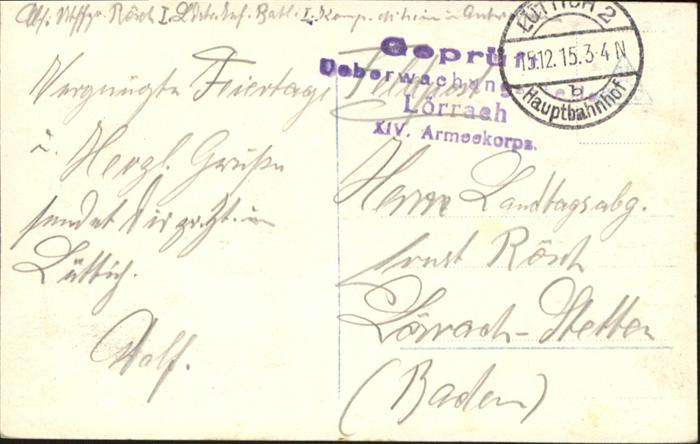 Abs: Utffz. Rösch I. Ldst. Inf. Batl. I. Komp.
Vergnügte Feiertage
u. Herzl. Grüße
sendet Dir z. Zt. in
Lüttich.
Adolf.
Feldpost
Geprüft
Ueberwachungs
Lörrach
XIV. Armeekorps.
LÜTTICH 2
15.12.15.3-4 N
b
Hauptbahnhof
Herrn Landtagsabg.
Ernst Rösch
Lörrach-Stetten
(Baden)